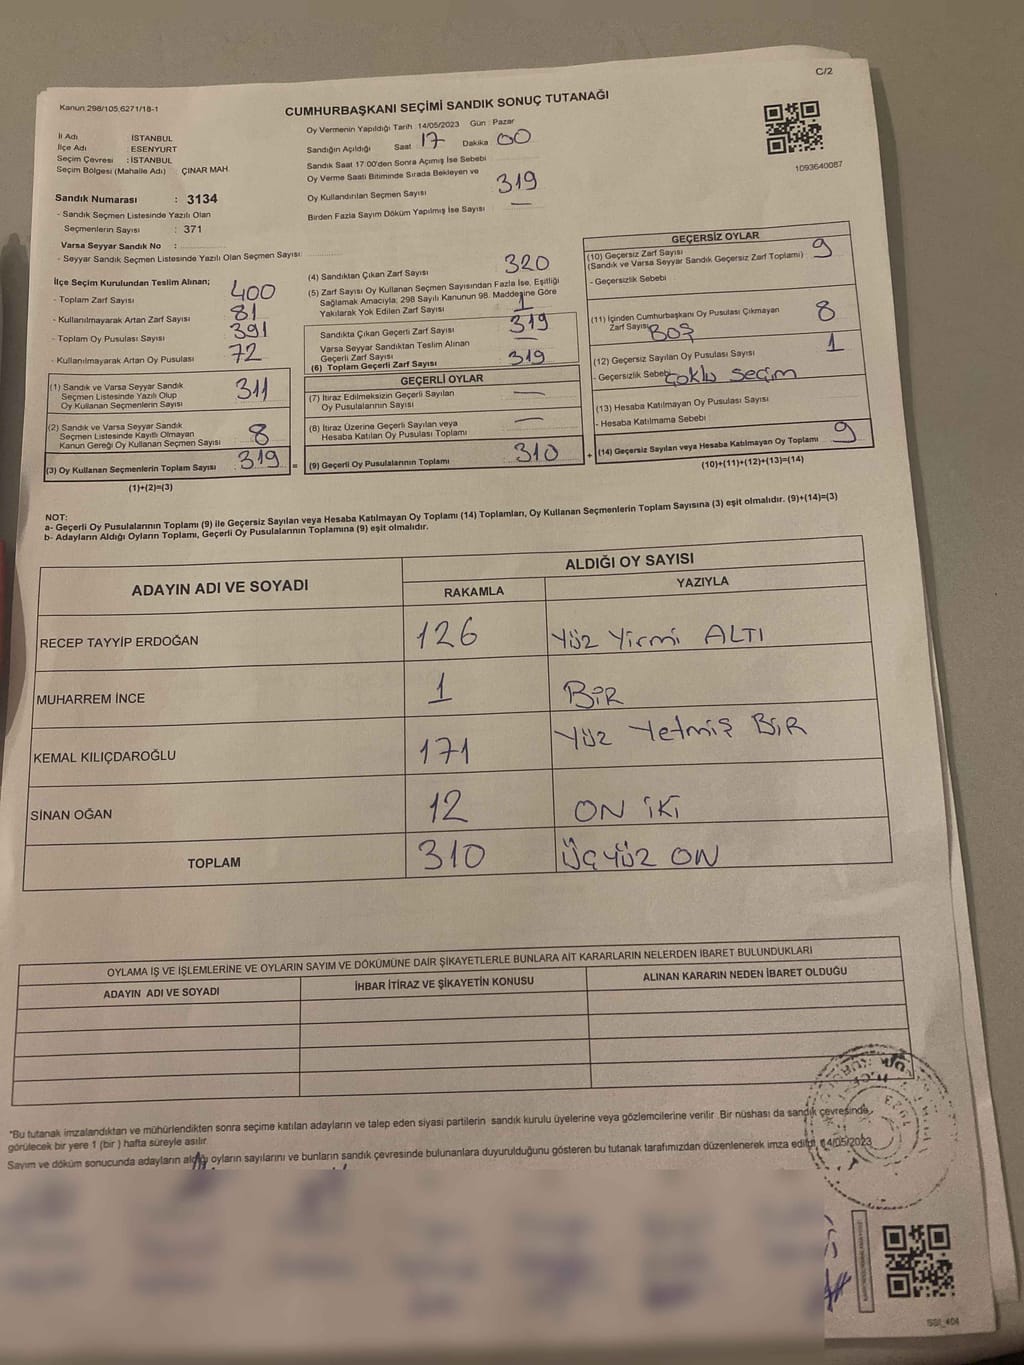 C/2
Kanun 298/105,6271/18-1
CUMHURBAŞKANI SEÇİMİ SANDIK SONUÇ TUTANAĞI
İl Adı İSTANBUL
İlçe Adı : ESENYURT
Seçim Çevresi : İSTANBUL
Seçim Bölgesi (Mahalle Adı) ÇINAR MAH
Sandık Numarası : 3134
- Sandık Seçmen Listesinde Yazılı Olan
Seçmenlerin Sayısı : 371
Varsa Seyyar Sandık No :
- Seyyar Sandık Seçmen Listesinde Yazılı Olan Seçmen Sayısı:
Oy Vermenin Yapıldığı Tarih :14/05/2023 Gün : Pazar
Sandığın Açıldığı Saat 17 Dakika 00
Sandık Saat 17:00'den Sonra Açımış İse Sebebi
Oy Verme Saati Bitiminde Sırada Bekleyen ve
Oy Kullandırılan Seçmen Sayısı 319
Birden Fazla Sayım Döküm Yapılmış İse Sayısı —
1093640087
İlçe Seçim Kurulundan Teslim Alınan;
- Toplam Zarf Sayısı 400
- Kullanılmayarak Artan Zarf Sayısı 81
- Toplam Oy Pusulası Sayısı 391
- Kullanılmayarak Artan Oy Pusulası 72
(1) Sandık ve Varsa Seyyar Sandık
Seçmen Listesinde Yazılı Olup
Oy Kullanan Seçmenlerin Sayısı 311
(2) Sandık ve Varsa Seyyar Sandık
Seçmen Listesinde Kayıtlı Olmayan
Kanun Gereği Oy Kullanan Seçmen Sayısı 8
(3) Oy Kullanan Seçmenlerin Toplam Sayısı 319 =
(1)+(2)=(3)
(4) Sandıktan Çıkan Zarf Sayısı 320
(5) Zarf Sayısı Oy Kullanan Seçmen Sayısından Fazla İse, Eşitliği
Sağlamak Amacıyla; 298 Sayılı Kanunun 98. Maddesine Göre
Yakılarak Yok Edilen Zarf Sayısı 1
Sandıkta Çıkan Geçerli Zarf Sayısı 319
Varsa Seyyar Sandıktan Teslim Alınan
Geçerli Zarf Sayısı —
(6) Toplam Geçerli Zarf Sayısı 319
GEÇERLİ OYLAR
(7) İtiraz Edilmeksizin Geçerli Sayılan
Oy Pusulalarının Sayısı —
(8) İtiraz Üzerine Geçerli Sayılan veya
Hesaba Katılan Oy Pusulası Toplamı —
(9) Geçerli Oy Pusulalarının Toplamı 310 +
GEÇERSİZ OYLAR
(10) Geçersiz Zarf Sayısı 9
(Sandık ve Varsa Seyyar Sandık Geçersiz Zarf Toplamı)
- Geçersizlik Sebebi
(11) İçinden Cumhurbaşkanı Oy Pusulası Çıkmayan
Zarf Sayısı BOŞ 8
(12) Geçersiz Sayılan Oy Pusulası Sayısı 1
- Geçersizlik Sebebi Çoklu Seçim
(13) Hesaba Katılmayan Oy Pusulası Sayısı
- Hesaba Katılmama Sebebi
(14) Geçersiz Sayılan veya Hesaba Katılmayan Oy Toplamı 9
(10)+(11)+(12)+(13)=(14)
NOT:
a- Geçerli Oy Pusulalarının Toplamı (9) ile Geçersiz Sayılan veya Hesaba Katılmayan Oy Toplamı (14) Toplamları, Oy Kullanan Seçmenlerin Toplam Sayısına (3) eşit olmalıdır. (9)+(14)=(3)
b- Adayların Aldığı Oyların Toplamı, Geçerli Oy Pusulalarının Toplamına (9) eşit olmalıdır.
ADAYIN ADI VE SOYADI
ALDIĞI OY SAYISI
RAKAMLA YAZIYLA
RECEP TAYYİP ERDOĞAN 126 Yüz Yirmi ALTI
MUHARREM İNCE 1 BİR
KEMAL KILIÇDAROĞLU 171 Yüz Yetmiş BİR
SİNAN OĞAN 12 ON İKİ
TOPLAM 310 Üçyüz ON
OYLAMA İŞ VE İŞLEMLERİNE VE OYLARIN SAYIM VE DÖKÜMÜNE DAİR ŞİKAYETLERLE BUNLARA AİT KARARLARIN NELERDEN İBARET BULUNDUKLARI
ADAYIN ADI VE SOYADI İHBAR İTİRAZ VE ŞİKAYETİN KONUSU ALINAN KARARIN NEDEN İBARET OLDUĞU
"Bu tutanak imzalandıktan ve mühürlendikten sonra seçime katılan adayların ve talep eden siyasi partilerin sandık kurulu üyelerine veya gözlemcilerine verilir .Bir nüshası da sandık çevresinde
görülecek bir yere 1 (bir ) hafta süreyle asılır.
Sayım ve döküm sonucunda adayların aldığı oyların sayılarını ve bunların sandık çevresinde bulunanlara duyurulduğunu gösteren bu tutanak tarafımızdan düzenlenerek imza edildi, 14/05/2023
SSİ_404